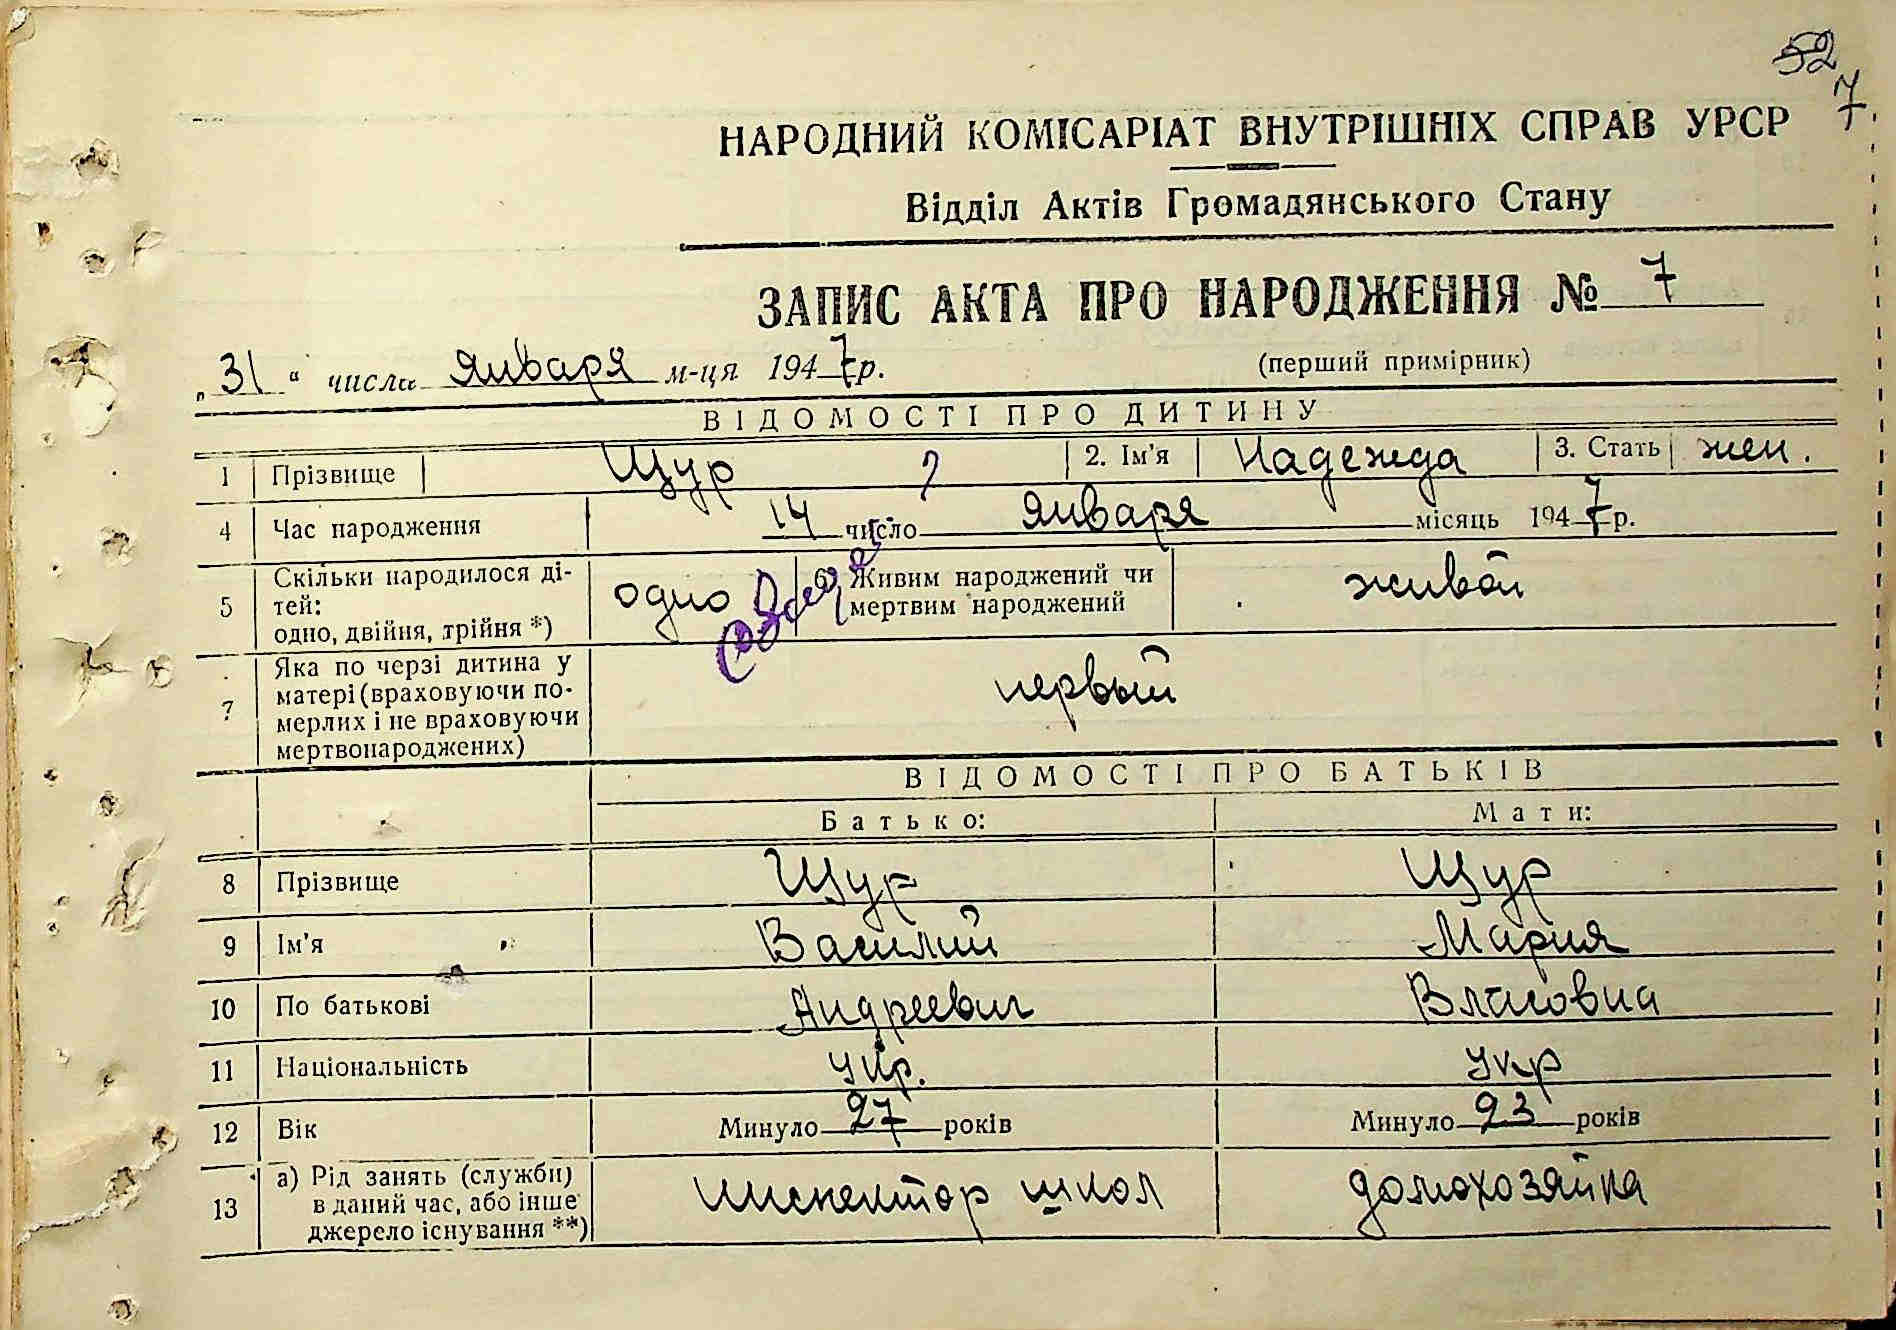 52
7
НАРОДНИЙ КОМІСАРІАТ ВНУТРІШНІХ СПРАВ УРСР
Відділ Актів Громадянського Стану
ЗАПИС АКТА ПРО НАРОДЖЕННЯ № 7
„31“ числа января м-ця 1947 р. (перший примірник)
ВІДОМОСТІ ПРО ДИТИНУ
1 Прізвище Щур 2. Ім'я Надежда 3. Стать жен.
4 Час народження 14 число января місяць 1947 р.
5 Скільки народилося ді-
тей:
одно, двійня, трійня *) одно 6 Живим народжений чи
мертвим народжений живой
7 Яка по черзі дитина у
матері (враховуючи по-
мерлих і не враховуючи
мертвонароджених) первый
ВІДОМОСТІ ПРО БАТЬКІВ
Батько: Мати:
8 Прізвище Щур Щур
9 Ім'я Василий Мария
10 По батькові Андреевич Власовна
11 Національність укр. укр
12 Вік Минуло 27 років Минуло 23 років
13 а) Рід занять (служби)
в даний час, або інше
джерело існування **) инспектор школ домохозяйка